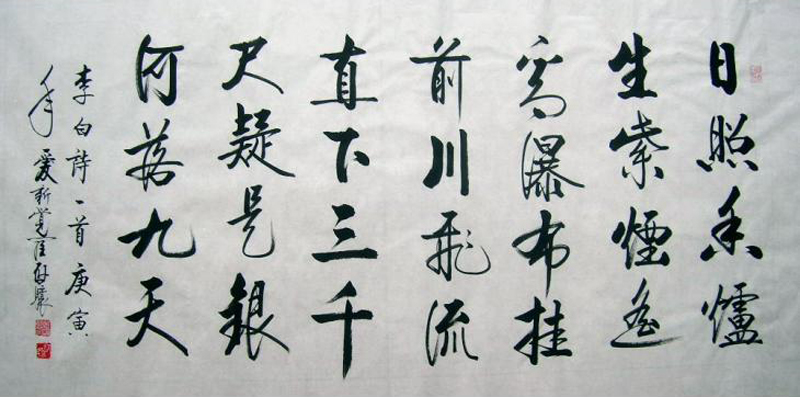 日照香爐
生紫煙遙
看瀑布挂
前川飛流
直下三千
尺疑是銀
河落九天
李白詩一首庚寅
年愛新覺羅啟驤